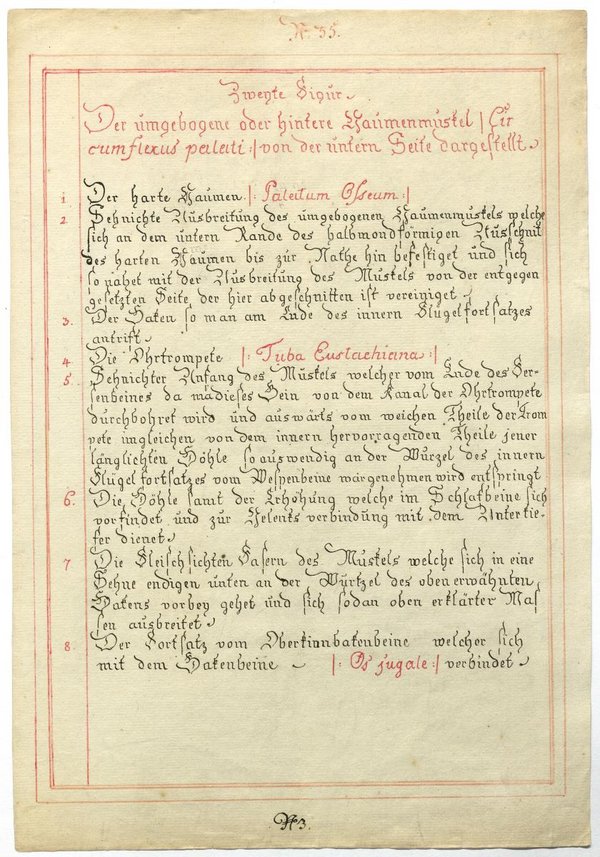 N: 35.
Zweyte Figur.
Der umgebogene oder hintere Gaumenmuskel |: Cir
cumflexus palati :| von der untern Seite dargestellt.
1 Der harte Gaumen |: Palatum Osseum :|
2 Sehnichte Ausbreitung des umgebogenen Gaumenmuskels welche
sich an dem untern Rande des halbmondförmigen Ausschnit
des harten Gaumen bis zur Nathe hin befestiget und sich
so nahet mit der Ausbreitung des Muskels von der entgegen
gesetzten Seite, der hier abgeschnitten ist vereiniget.
3. Der Haken so man am Ende des innern Flügelfortsatzes
antrift.
4 Die Ohrtrompete |: Tuba Eustachiana :|
5. Sehnichter Anfang des Muskels welcher vom Ende des Ser-
senbeines da wo dieses Bein von dem Kanal der Ohrtrompete
durchbohret wird und auswärts vom weichen Theile der Trom
pete imgleichen von dem innern hervorragenden Theile jener
länglichten Höhle so auswendig an der Wurzel des innern
Flügelfortsatzes vom Wespenbeine wargenehmen wird entspringt
6. Die Höhle samt der Erhöhung welche im Schlafbeine sich
vorfindet und zur Gelenksverbindung mit dem Unterkie-
fer dienet.
7 Die Fleischsichten Fasern des Muskels welche sich in eine
Sehne endigen unten an der Würtzel des oben erwähnten
Hakens vorbey gehet und sich sodan oben erklärter Mas
sen ausbreitet.
8 Der Fortsatz vom Oberkinnbakenbeine welcher sich
mit dem Bakenbeine |: Os jugale :| verbindet.
N 3.